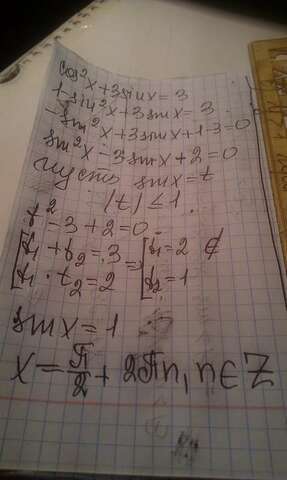 cos²x+3sinx=3
1-sin²x+3sinx=3
-sin²x+3sinx+1-3=0
sin²x-3sinx+2=0
пусть sinx=t
|t|≤1
t²-3+2=0
[t₁+t₂=3 ⇒ [t₁=2 ∉
[t₁·t₂=2 [t₂=1
sinx=1
x=π/2+2πn, n∈Z